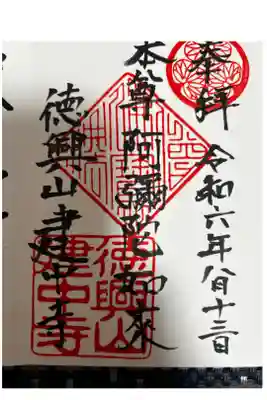 奉拝
令和六年八月十三日
本尊 阿彌陀如來
徳興山建中寺
徳興山
建中寺